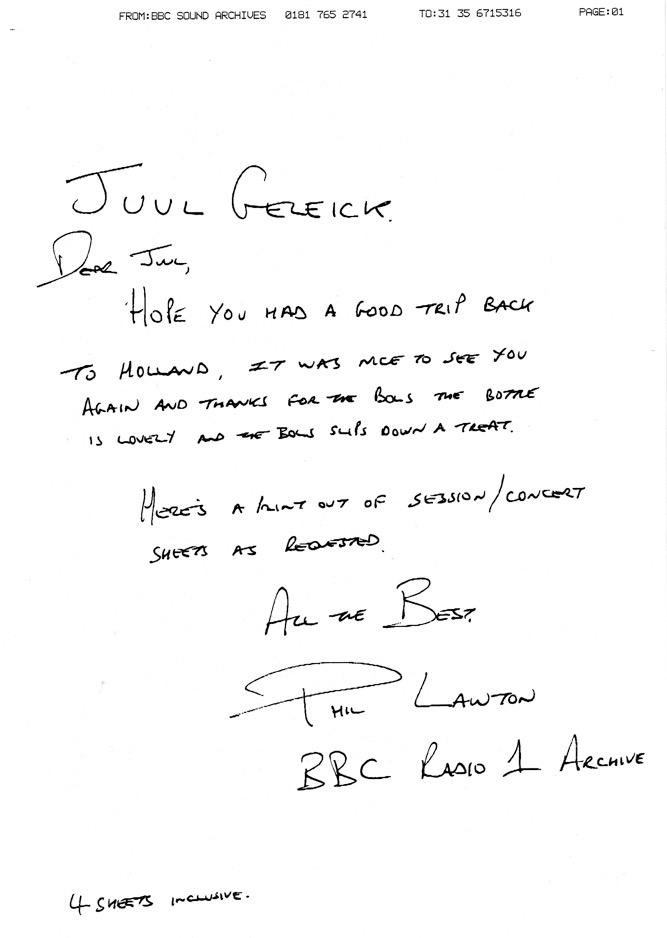 FROM:BBC SOUND ARCHIVES 0181 765 2741 TO:31 35 6715316 PAGE:01
JUUL GELEICK.
DEAR JUUL,
HOPE YOU HAD A GOOD TRIP BACK
TO HOLLAND, IT WAS NICE TO SEE YOU
AGAIN AND THANKS FOR THE BOLS THE BOTTLE
IS LOVELY AND THE BOLS SLIPS DOWN A TREAT.
HERE'S A PRINT OUT OF SESSION/CONCERT
SHEETS AS REQUESTED.
ALL THE BEST.
PHIL LAWTON
BBC RADIO 1 ARCHIVE
4 SHEETS INCLUSIVE.